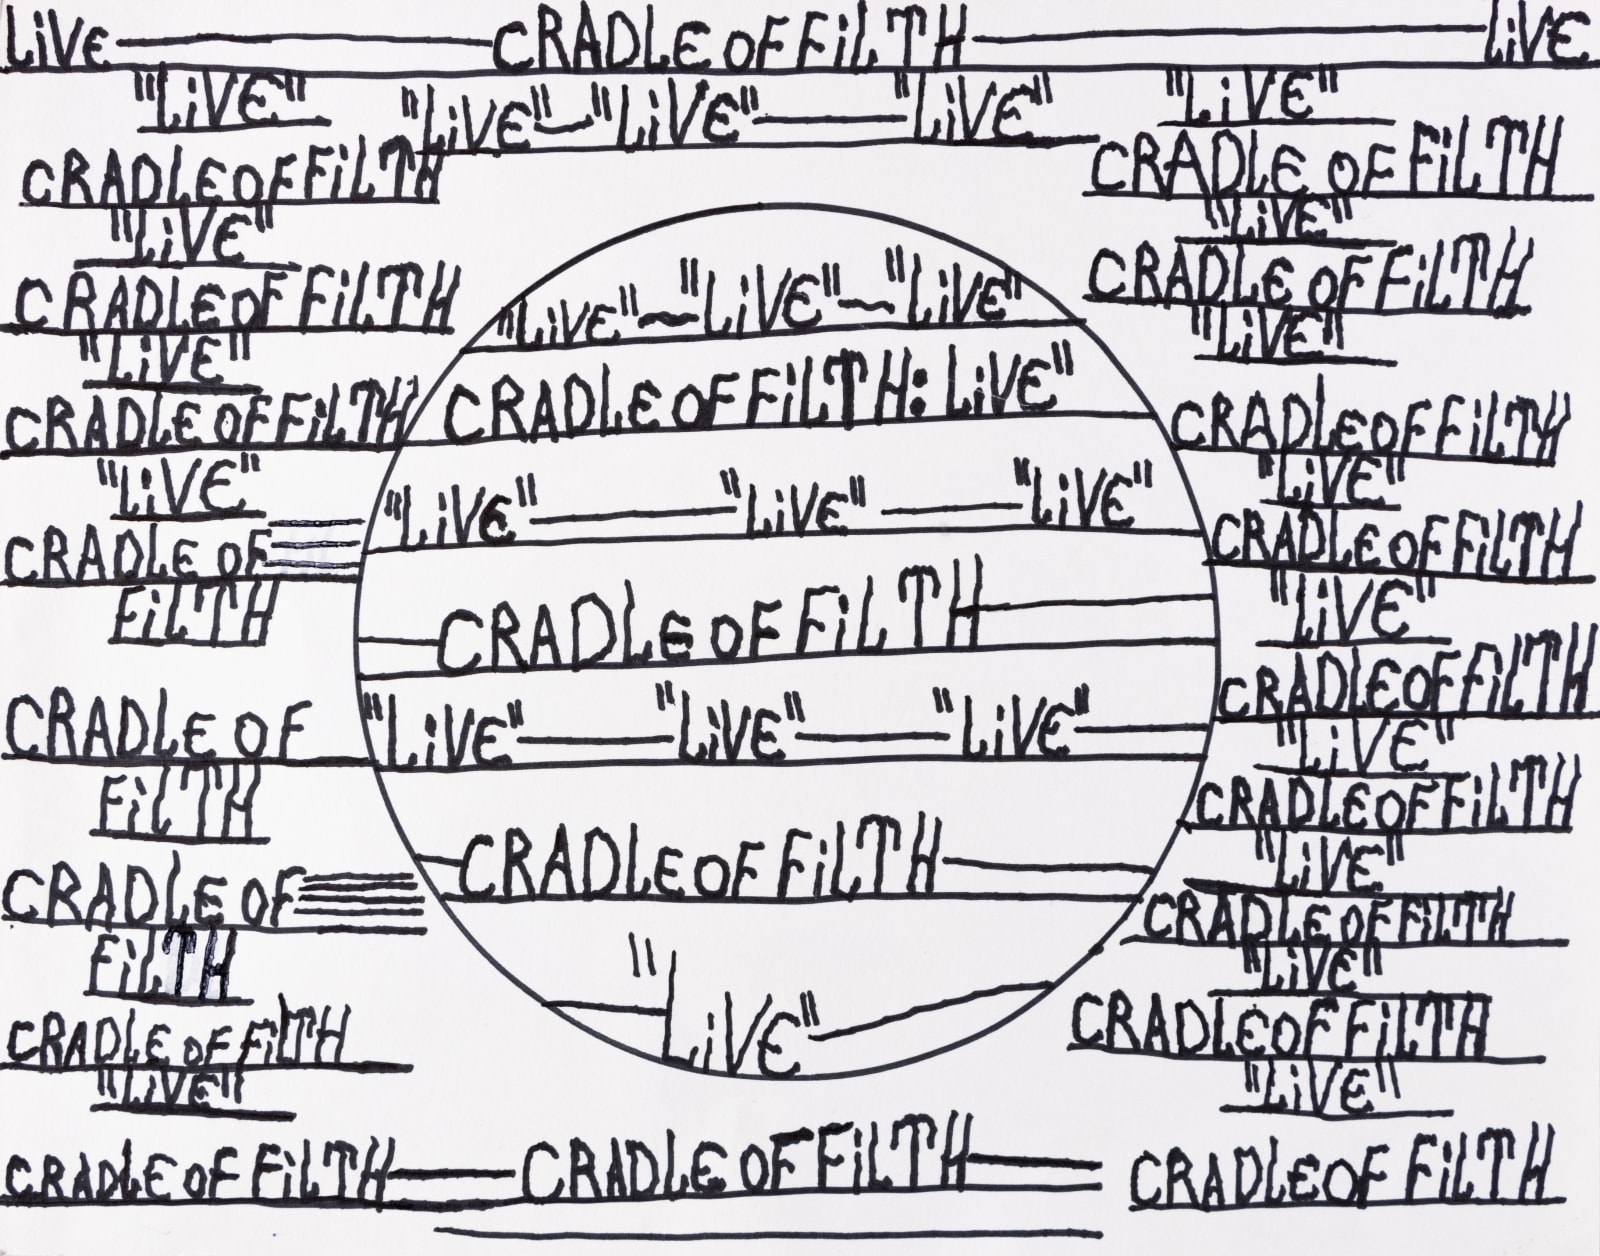 LiVE CRADLE OF FiLTH LiVE
"LiVE"
CRADLE OF FiLTH
"LiVE"
CRADLE OF FiLTH
"LiVE"
CRADLE OF FiLTH
"LiVE"
CRADLE OF
FiLTH
CRADLE OF
FiLTH
CRADLE OF
FiLTH
CRADLE OF FiLTH
"LiVE"
CRADLE OF FiLTH
"LiVE" "LiVE" "LiVE"
"LiVE" "LiVE" "LiVE"
CRADLE OF FiLTH: LiVE"
"LiVE" "LiVE" "LiVE"
CRADLE OF FiLTH
"LiVE" "LiVE" "LiVE"
CRADLE OF FiLTH
"LiVE"
CRADLE OF FiLTH
"LiVE"
CRADLE OF FiLTH
"LiVE"
CRADLE OF FiLTH
"LiVE"
CRADLE OF FiLTH
"LiVE"
CRADLE OF FiLTH
"LiVE"
CRADLE OF FiLTH
"LiVE"
CRADLE OF FiLTH
"LiVE"
CRADLE OF FiLTH
"LiVE"
CRADLE OF FiLTH
"LiVE"
CRADLE OF FiLTH